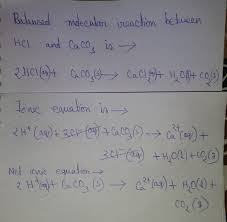 Balanced molecular reaction between
HCl and CaCO3 is →
2HCl(aq) + CaCO3(s) → CaCl2(aq) + H2O(l) + CO2(g)
Ionic equation is →
2H+(aq) + 2Cl-(aq) + CaCO3(s) → Ca2+(aq) +
2Cl-(aq) + H2O(l) + CO2(g)
Net ionic equation →
2H+(aq) + CaCO3(s) → Ca2+(aq) + H2O(l) +
CO2(g)